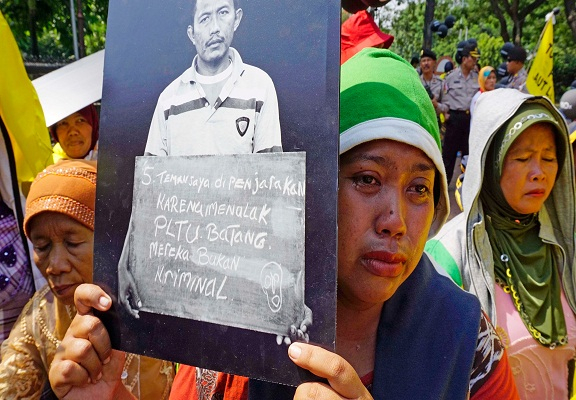 5. TEMAN SAYA di PENJARAKAN
KARENA MENOLAK
PLTU BATANG.
MEREKA BUKAN
KRIMINAL